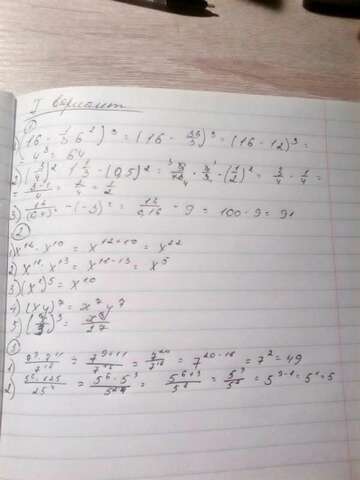 I вариант
①
1) (16 - 1/3 6²)³ = (16 - 36/3)³ = (16 - 12)³ =
= 4³ = 64
2) (3/4)² · 1 1/3 - (0,5)² = 9/16 · 4/3 - (1/2)² = 3/4 - 1/4 =
= 3-1/4 = 2/4 = 1/2
3) 16/(0,4)² - (-3)² = 16/0,16 - 9 = 100 - 9 = 91
②
1) x¹² · x¹⁰ = x¹²⁺¹⁰ = x²²
2) x¹⁸ · x¹³ = x¹⁸⁻¹³ = x⁵
3) ( )⁵ = x¹⁰
4) (xy)⁷ = x⁷y⁷
5) ( )³ = x³/27
③
1) 7⁹·7¹¹/7¹⁸ = 7⁹⁺¹¹/7¹⁸ = 7²⁰/7¹⁸ = 7²⁰⁻¹⁸ = 7² = 49
2) 5⁶·125/25⁴ = 5⁶·5³/ = 5⁶⁺³/5⁸ = 5⁹/5⁸ = 5⁹⁻⁸ = 5¹ = 5